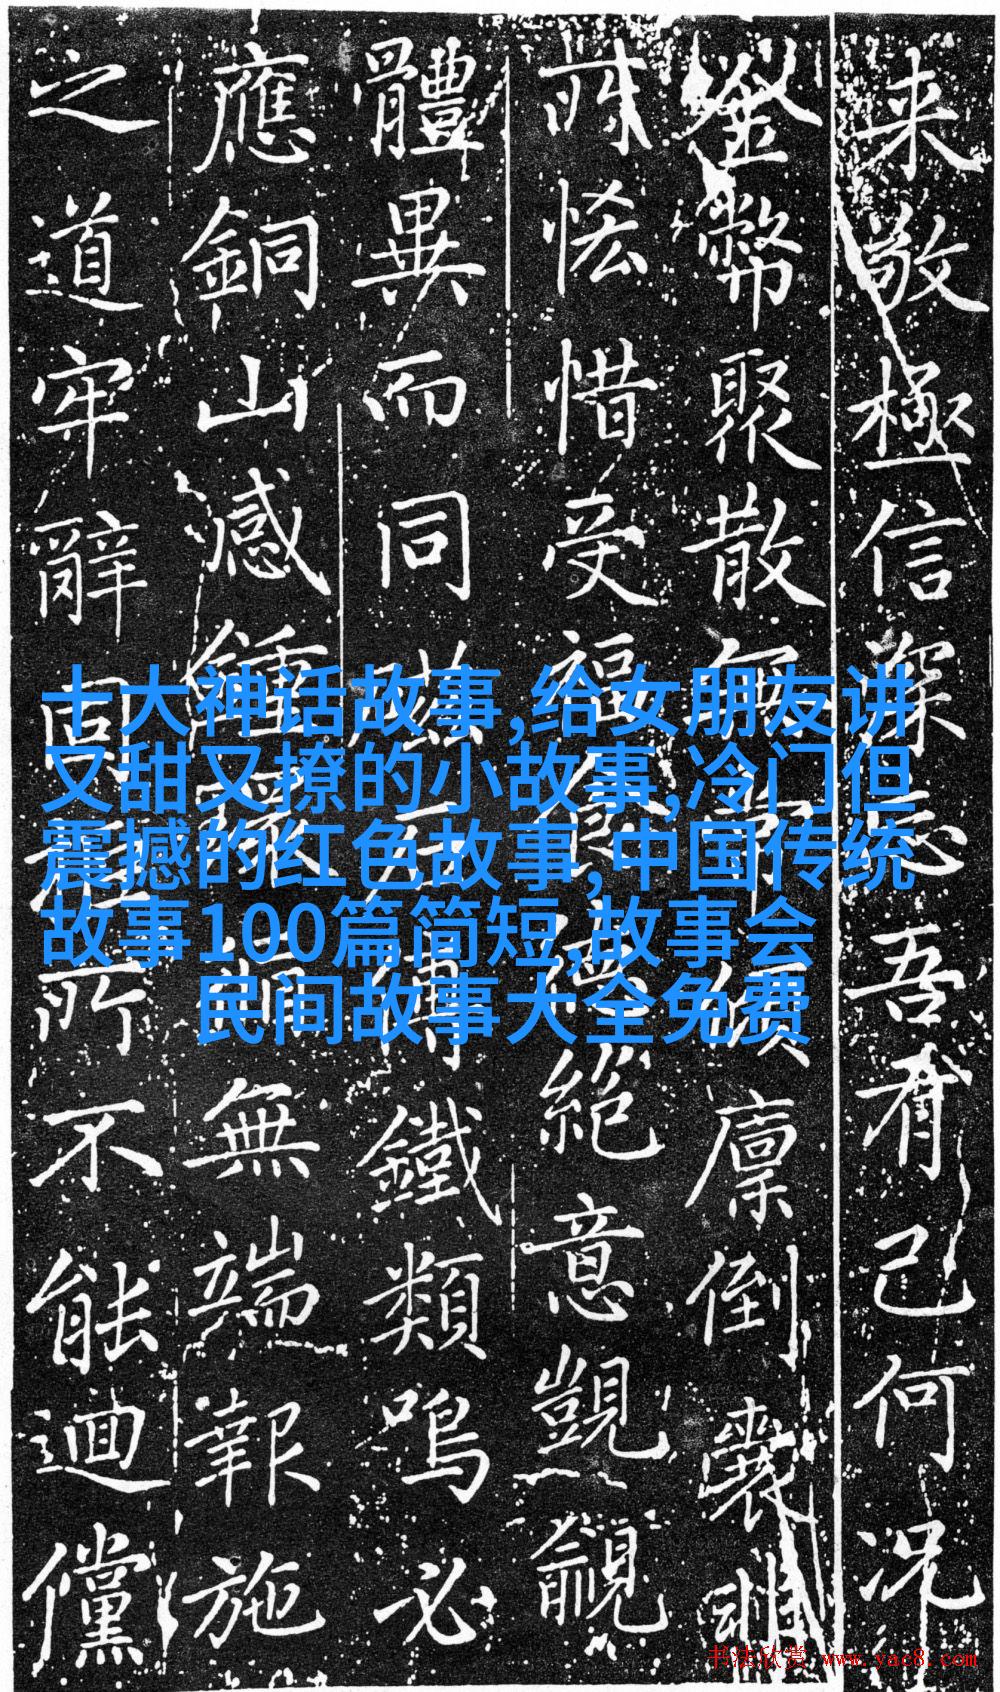 来敬極信深忘吾有己何况
金幣聚散無廪倒裳雖
所恡惜受福絕意覬覦
體異而同鐵類鳴必
應銅山感鍾無端報施
之道牢辭固所不能迴儻
十大神话故事,给女朋友讲
又甜又撩的小故事,冷门但
震撼的红色故事,中国传统
故事100篇简短,故事会
民间故事大全免费
书法欣赏 www.yac8.com